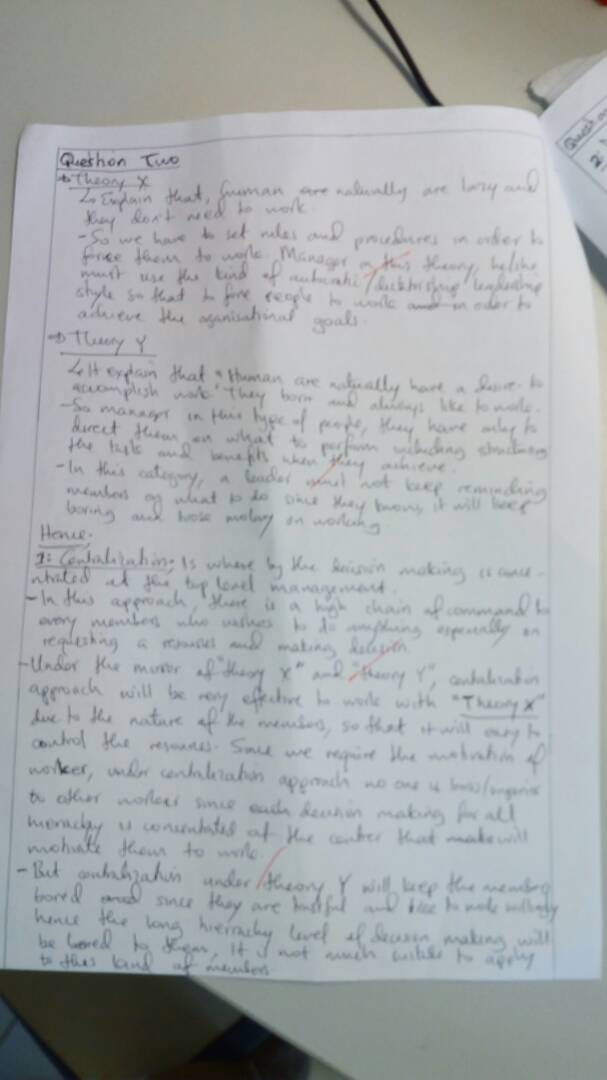 Question Two
Theory X
Explain that, human are naturally are lazy and
they don't need to work.
- So we have to set rules and procedures in order to
force them to work. Manager in this theory, he/she
must use the kind of autocratic/dictatorship leadership
style so that to force people to work and in order to
achieve the organisational goals.
Theory Y
It explain that "Human are naturally have a desire to
accomplish work" They born and always like to work.
- So manager in this type of people, they have only to
direct them on what to perform including structuring
the tasks and benefits when they achieve.
- In this category, a leader must not keep reminding
members of what to do since they knows, it will keep
boring and on working
Hence.
1: Centralization: Is where by the decision making is conce-
ntrated at the top level management.
- In this approach, there is a high chain of command to
every members who wishes to do anything especially on
requesting a resources and making decision.
- Under the mirror of "theory X" and "theory Y", centralization
approach will be very effective to work with "Theory X"
due to the nature of the members, so that it will easy to
control the resources. Since we require the motivation of
worker, under centralization approach no one is boss/
to other worker since each decision making for all
is concentrated at the center that make will
motivate them to work.
- But centralization under theory Y will keep the members
bored since they are and like to work willingly
hence the long level of decision making will
be bored to them, It is not much suitable to apply
to this kind of members
Question
2